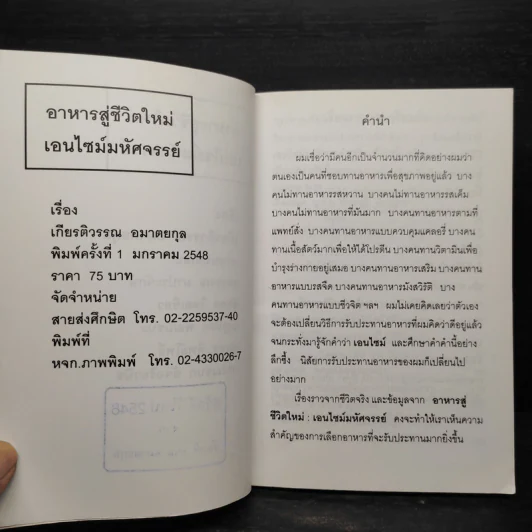 อาหารสู่ชีวิตใหม่
เอนไซม์มหัศจรรย์
เรื่อง
เกียรติวรรณ อมาตยกุล
พิมพ์ครั้งที่ 1 มกราคม 2548
ราคา 75 บาท
จัดจำหน่าย
สายส่งศึกษิต โทร. 02-2259537-40
พิมพ์ที่
หจก.ภาพพิมพ์ โทร. 02-4330026-7
2548
คำนำ
ผมเชื่อว่ามีคนอีกเป็นจำนวนมากที่คิดอย่างผมว่า
ตนเองเป็นคนที่ชอบทานอาหารเพื่อสุขภาพอยู่แล้ว บาง
คนไม่ทานอาหารรสหวาน บางคนไม่ทานอาหารรสเค็ม
บางคนไม่ทานอาหารที่มันมาก บางคนทานอาหารตามที่
แพทย์สั่ง บางคนทานอาหารแบบควบคุมแคลอรี่ บางคน
ทานเนื้อสัตว์มากเพื่อให้ได้โปรตีน บางคนทานวิตามินเพื่อ
บำรุงร่างกายอยู่เสมอ บางคนทานอาหารเสริม บางคนทาน
อาหารแบบรสจืด บางคนทานอาหารมังสวิรัติ บาง
คนทานอาหารแบบชีวจิต ฯลฯ ผมไม่เคยคิดเลยว่าตัวเอง
จะต้องเปลี่ยนวิธีการรับประทานอาหารที่ผมคิดว่าดีอยู่แล้ว
จนกระทั่งมารู้จักคำว่า เอนไซม์ และศึกษาคำคำนี้อย่าง
ลึกซึ้ง นิสัยการรับประทานอาหารของผมก็เปลี่ยนไป
อย่างมาก
เรื่องราวจากชีวิตจริง และข้อมูลจาก อาหารสู่
ชีวิตใหม่ : เอนไซม์มหัศจรรย์ คงจะทำให้เราเห็นความ
สำคัญของการเลือกอาหารที่จะรับประทานมากยิ่งขึ้น